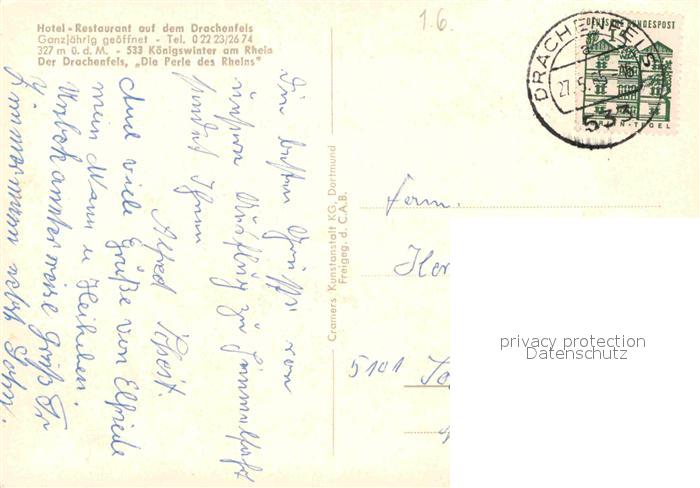 Hotel-Restaurant auf dem Drachenfels
Ganzjährig geöffnet - Tel. 0 22 23/26 74
327 m ü. d. M. - 533 Königswinter am Rhein
Der Drachenfels, „Die Perle des Rheins"
1.6.
DEUTSCHE BUNDESPOST
DRACHENFELS
533
Die besten Grüße von
unserm Ausflug zu Himmelfahrt
sendet Ihnen
Alfred
Auch viele Grüße von Elfriede
mein Mann u.
Unbekannterweise grüßt Fr.
Zimmermann nebst Sohn.
Cramers Kunstanstalt KG, Dortmund
Freigeg. d. C.A.B.
Fam.
5101
privacy protection
Datenschutz